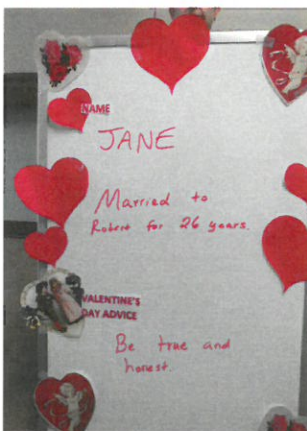 NAME
JANE
Married to
Robert for 26 years.
VALENTINE'S
DAY ADVICE
Be true and
honest.